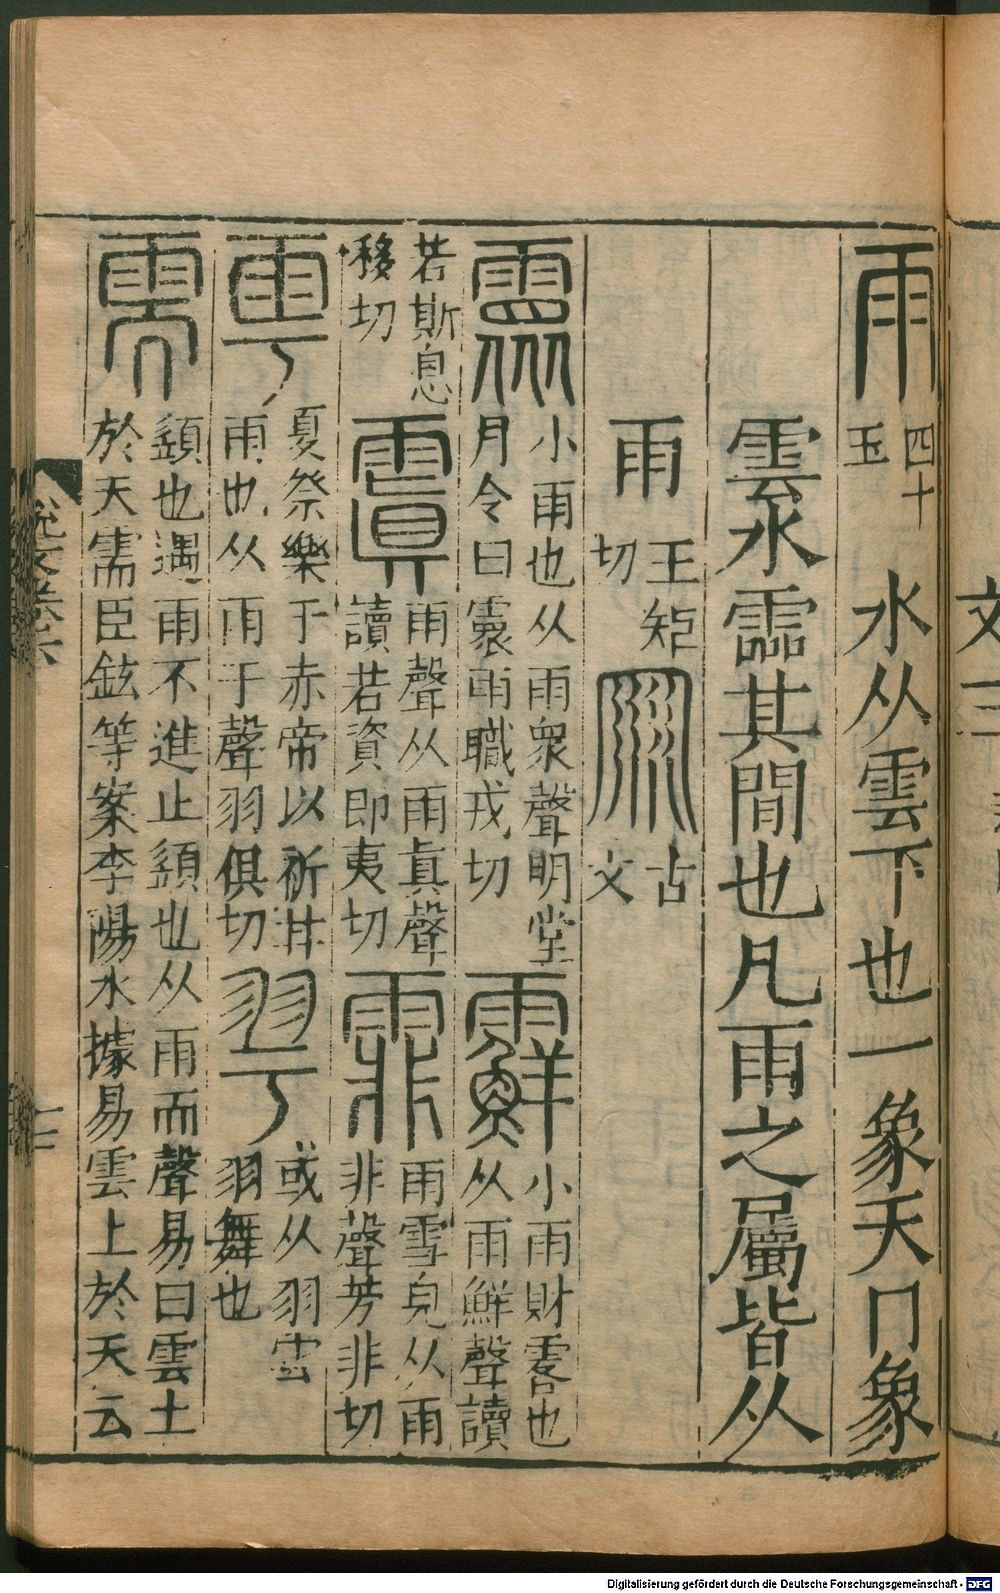 雨 四十五 水从雲下也一象天冂象
雲水霝其間也凡雨之屬皆从
雨 王矩切 𠕲 古文
霥 小雨也从雨眾聲明堂月令曰霥雨職戎切 䨘 小雨財零也从雨鮮聲讀
若斯息移切 霣 雨聲从雨真聲讀若資即夷切 霏 雨雪皃从雨非聲芳非切
雩 夏祭樂于赤帝以祈甘雨也从雨于聲羽俱切 𦏴 或从羽雩羽舞也
需 䇓也遇雨不進止䇓也从雨而聲易曰雲上於天需臣鉉等案李陽冰據易雲上於天云
說文卷六
七
Digitalisierung gefördert durch die Deutsche Forschungsgemeinschaft - DFG